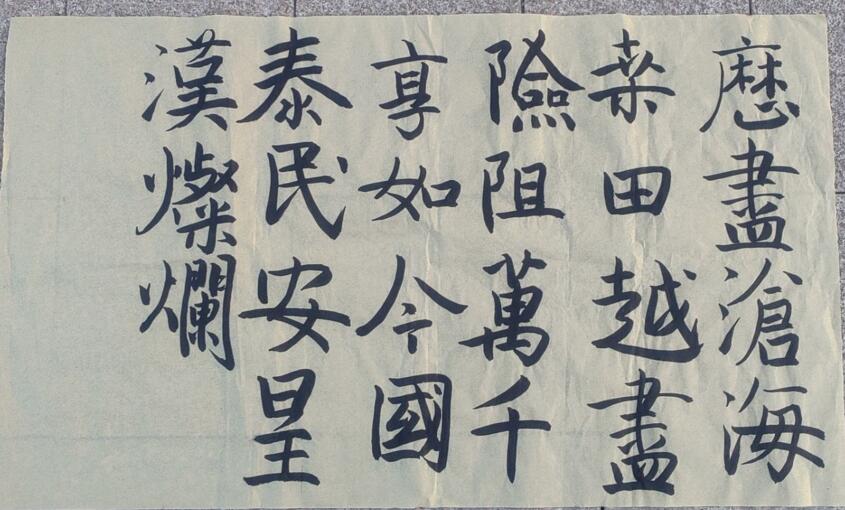 歷盡滄海
桒田越盡
險阻萬千
享如今國
泰民安星
漢燦爛